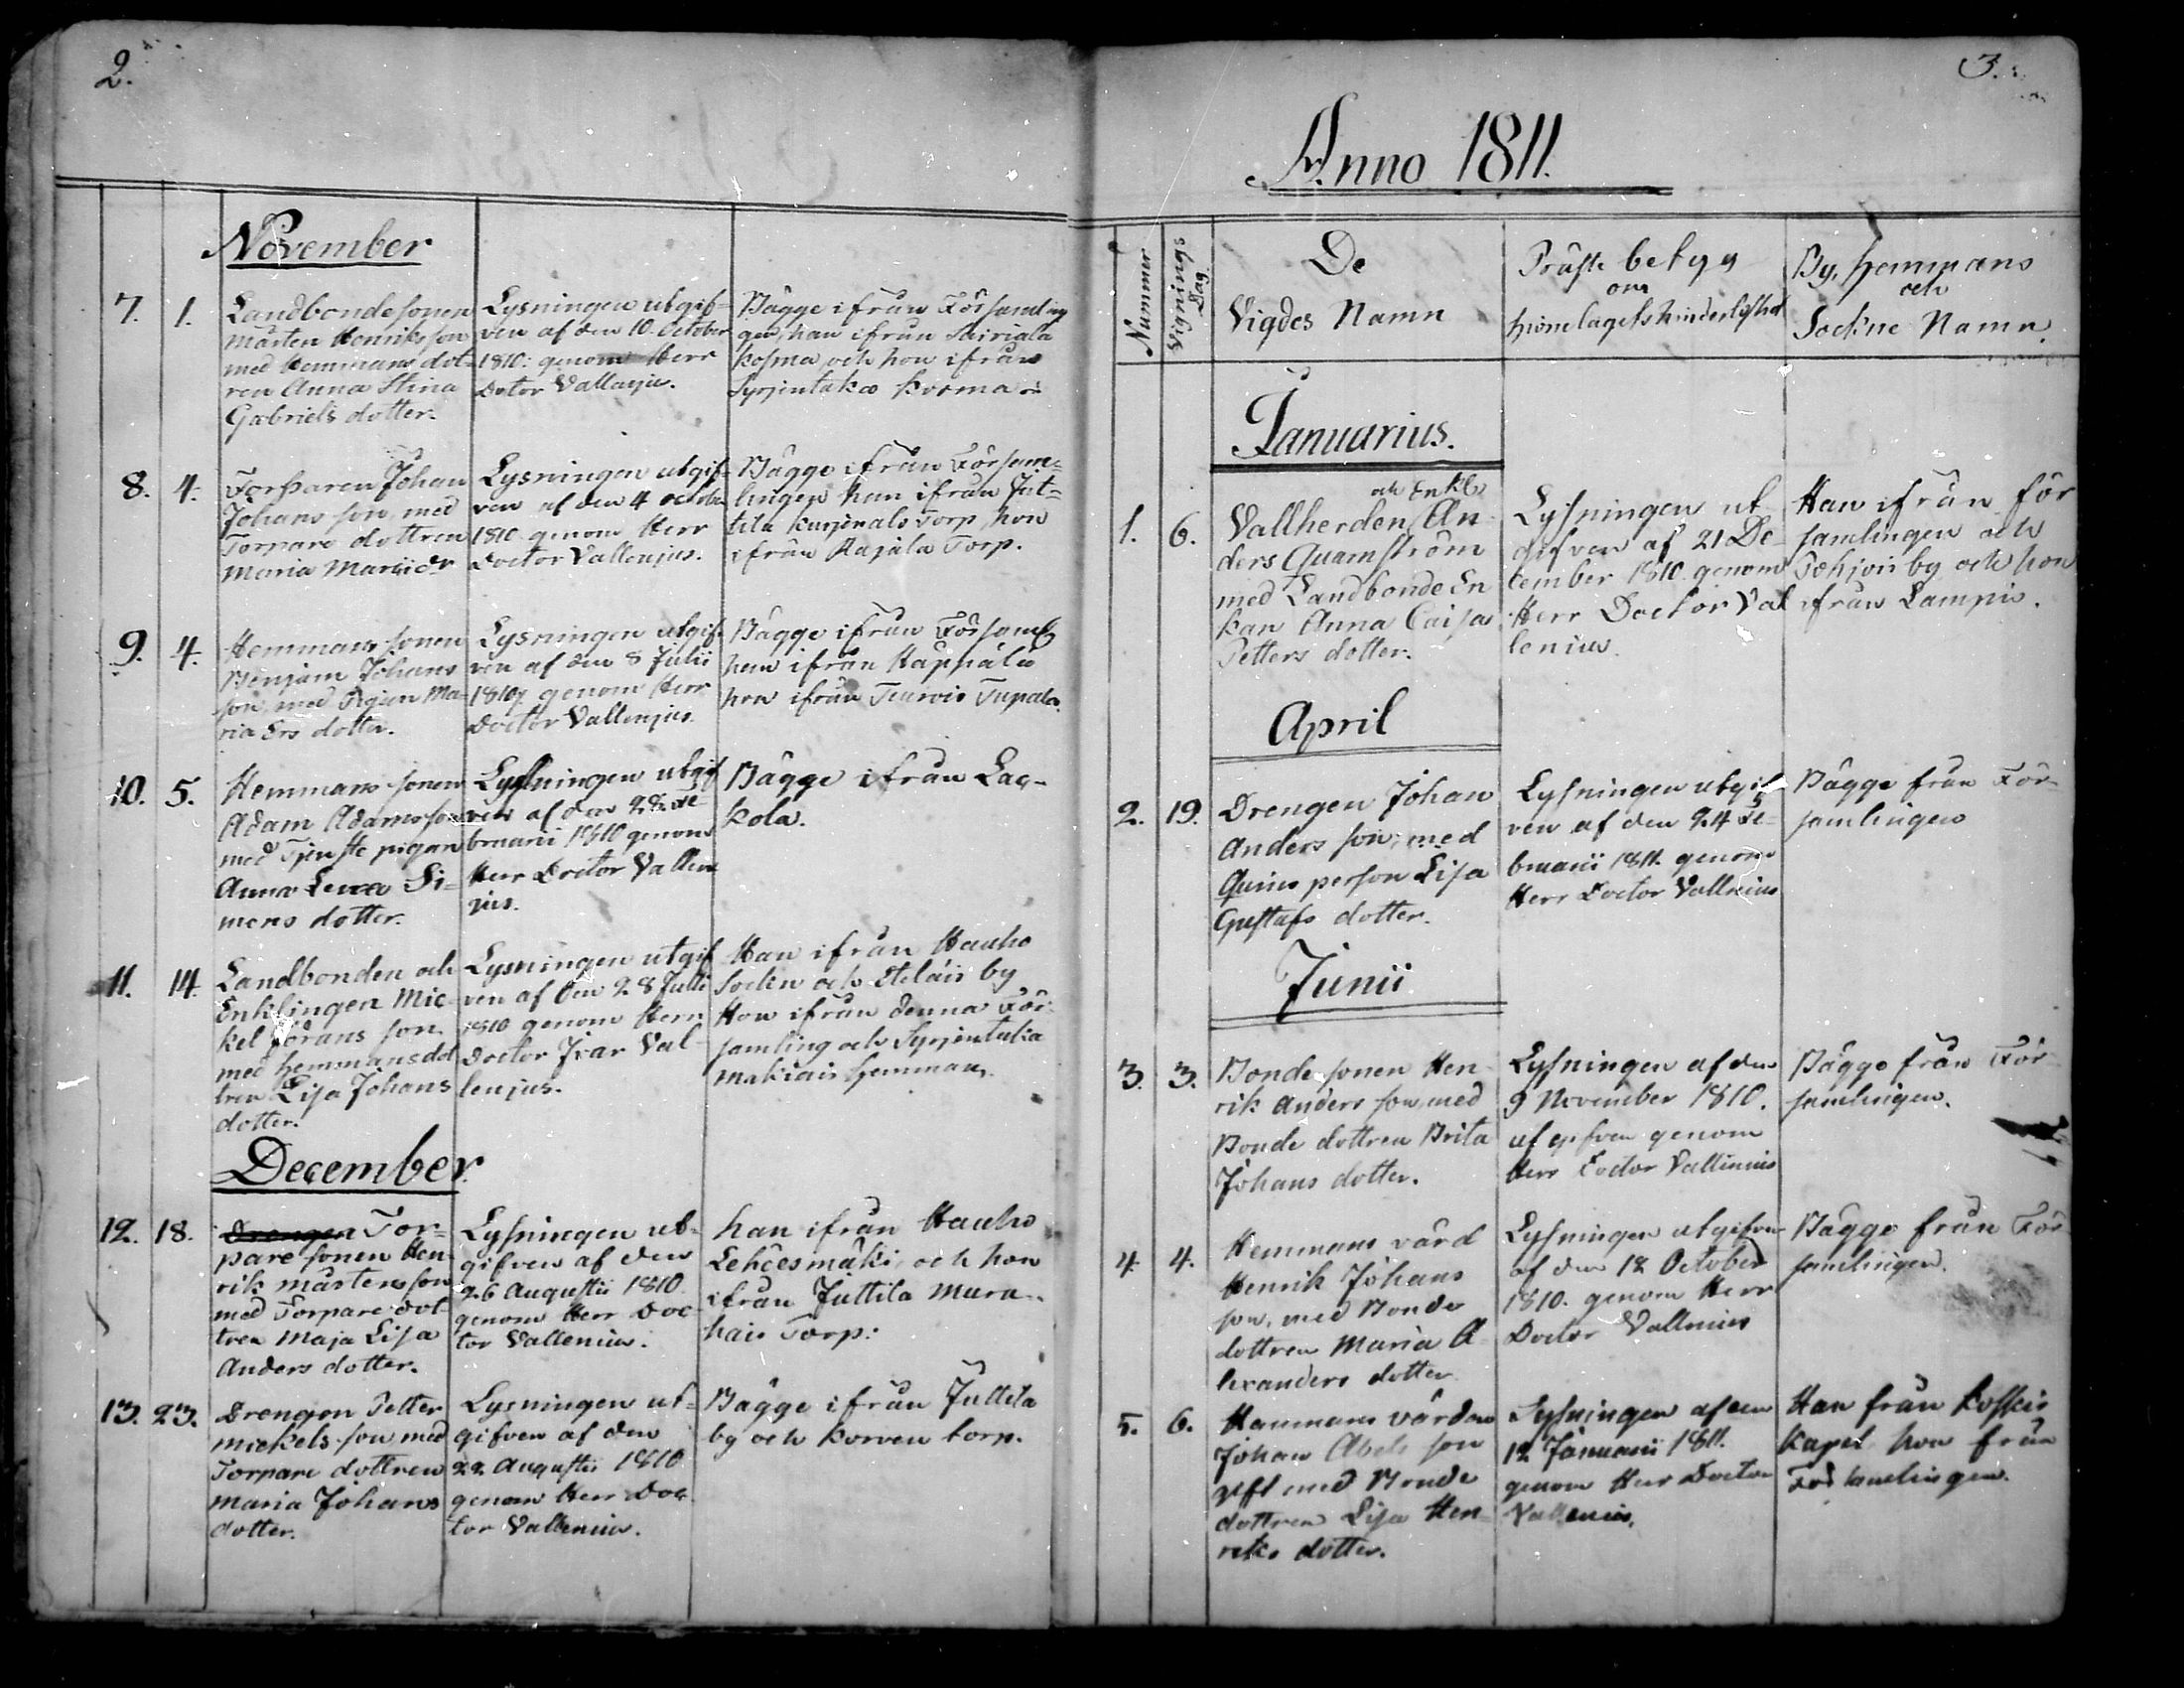 2.
November
7. 1.
Landbondesonen
Mårten Henriks son
med Hemmans dot-
ren Anna Stina
Gabriels dotter.
Lysningen utgif-
ven af den 10. October
1810: genom Herr
Doctor
Bägge ifrån Församling
gen, han ifrån Sairiala
Kosma, och hon ifrån
Syrjentaka
8. 4.
Torparen Johan
Johans son, med
Torpare dottren
Maria
Lysningen utgif-
ven af den 4 october
1810 genom Herr
Doctor Vallenjus.
Bägge ifrån Försam-
lingen han ifrån Jut-
tila Torp, hon
ifrån Rajala Torp.
9. 4.
Hemmans sonen
Benjam Johans
son, med Pigan Ma-
ria Ers dotter.
Lysningen utgif-
ven af den 8 Julii
1810 genom Herr
Doctor Vallenjus.
Bägge ifrån Församl
han ifrån
hon ifrån Tupala.
10. 5.
Hemmans sonen
Adam Adams son
med Tjenste pigan
Anna Lena Si-
mens dotter.
Lysningen utgif
ven af den 28 Fe-
bruarii 1810 genom
Herr Doctor Vallen
jus.
Bägge ifrån Lau-
kola.
11. 14.
Landbonden och
Enklingen Mic-
kel Jörans son.
med Hemmansdot
tren Lisa Johans
dotter.
Lysningen utgif
ven af den 28 Julii
1810 genom Herr
Doctor Ivar Val-
lenjus.
Han ifrån Hauho
Sockn och Eteläis by
Hon ifrån denna För-
samling och Syrjentaka
Hemman.
December
12. 18.
Drengen Tor-
pare sonen Hen-
rik Mårtens son
med Torpare dot-
tren Maja Lisa
Anders dotter.
Lysningen ut-
gifven af den
26 Augustii 1810
genom Herr Doc
tor Vallenius.
han ifrån Hauho
Lehdesmäki, och hon
ifrån Juttila Mura-
hais Torp:
13. 23.
Drengen Petter
Mickels son med
Torpare dottren
Maria Johans
dotter.
Lysningen ut-
gifven af den
22 Augustii 1810
genom Herr Doc
tor Vallenius.
Bägge ifrån Juttila
by och Korven torp.
3.
Anno 1811.
Nummer
Vignings
Dag.
De
Vigdes Namn
Präste betyg
om
hionelagets hinderlöshet
By, Hemmans
och
Sockne Namn.
Januarius.
1. 6.
och Enkl.
Vallherden An-
ders Quamström
med Landbonde En
kan Anna Caisa
Petters dotter.
Lysningen ut
gifven af 21 De-
cember 1810 genom
Herr Doctor Val
lenius.
Han ifrån För
samlingen och
Pohjois by och hon
ifrån Lampis.
April
2. 19.
Drengen Johan
Anders son, med
Quins person Lisa
Gustafs dotter.
Lysningen utgif
ven af den 24 Fe-
bruarii 1811. genom
Herr Doctor Vallenius
Bägge från För-
samlingen
Junii
3. 3.
Bonde sonen Hen-
rik Anders son, med
Bonde dottren Brita
Johans dotter.
Lysningen af den
9 November 1810.
af gifven genom
Herr Doctor Vallenius
Bägge från För-
samlingen.
4. 4.
Hemmans värd
Henrik Johans
son, med Bonde
dottren Maria A-
lexanders dotter
Lysningen utgifven
af den 12 October
1810. genom Herr
Doctor Vallenius
Bägge från För
samlingen.
5. 6.
Hemmans värden
Johan Abels son
gift med Bonde
dottren Lisa Hen-
riks dotter.
Lysningen af den
12 Januarii 1811.
genom Herr Doctor
Vallenius.
Han från Koskis
Kapel, hon från
Församlingen.